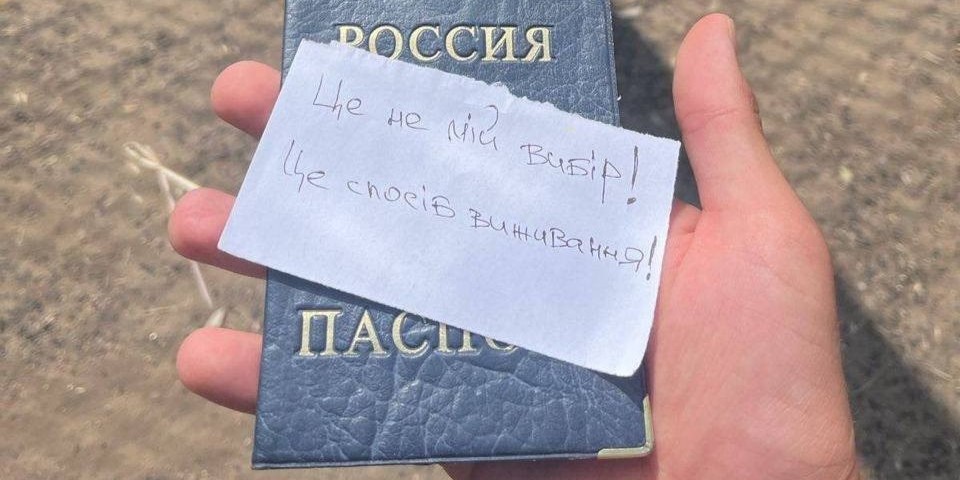 РОССИЯ
Це не мій вибір!
Це спосіб виживання!
ПАСПО